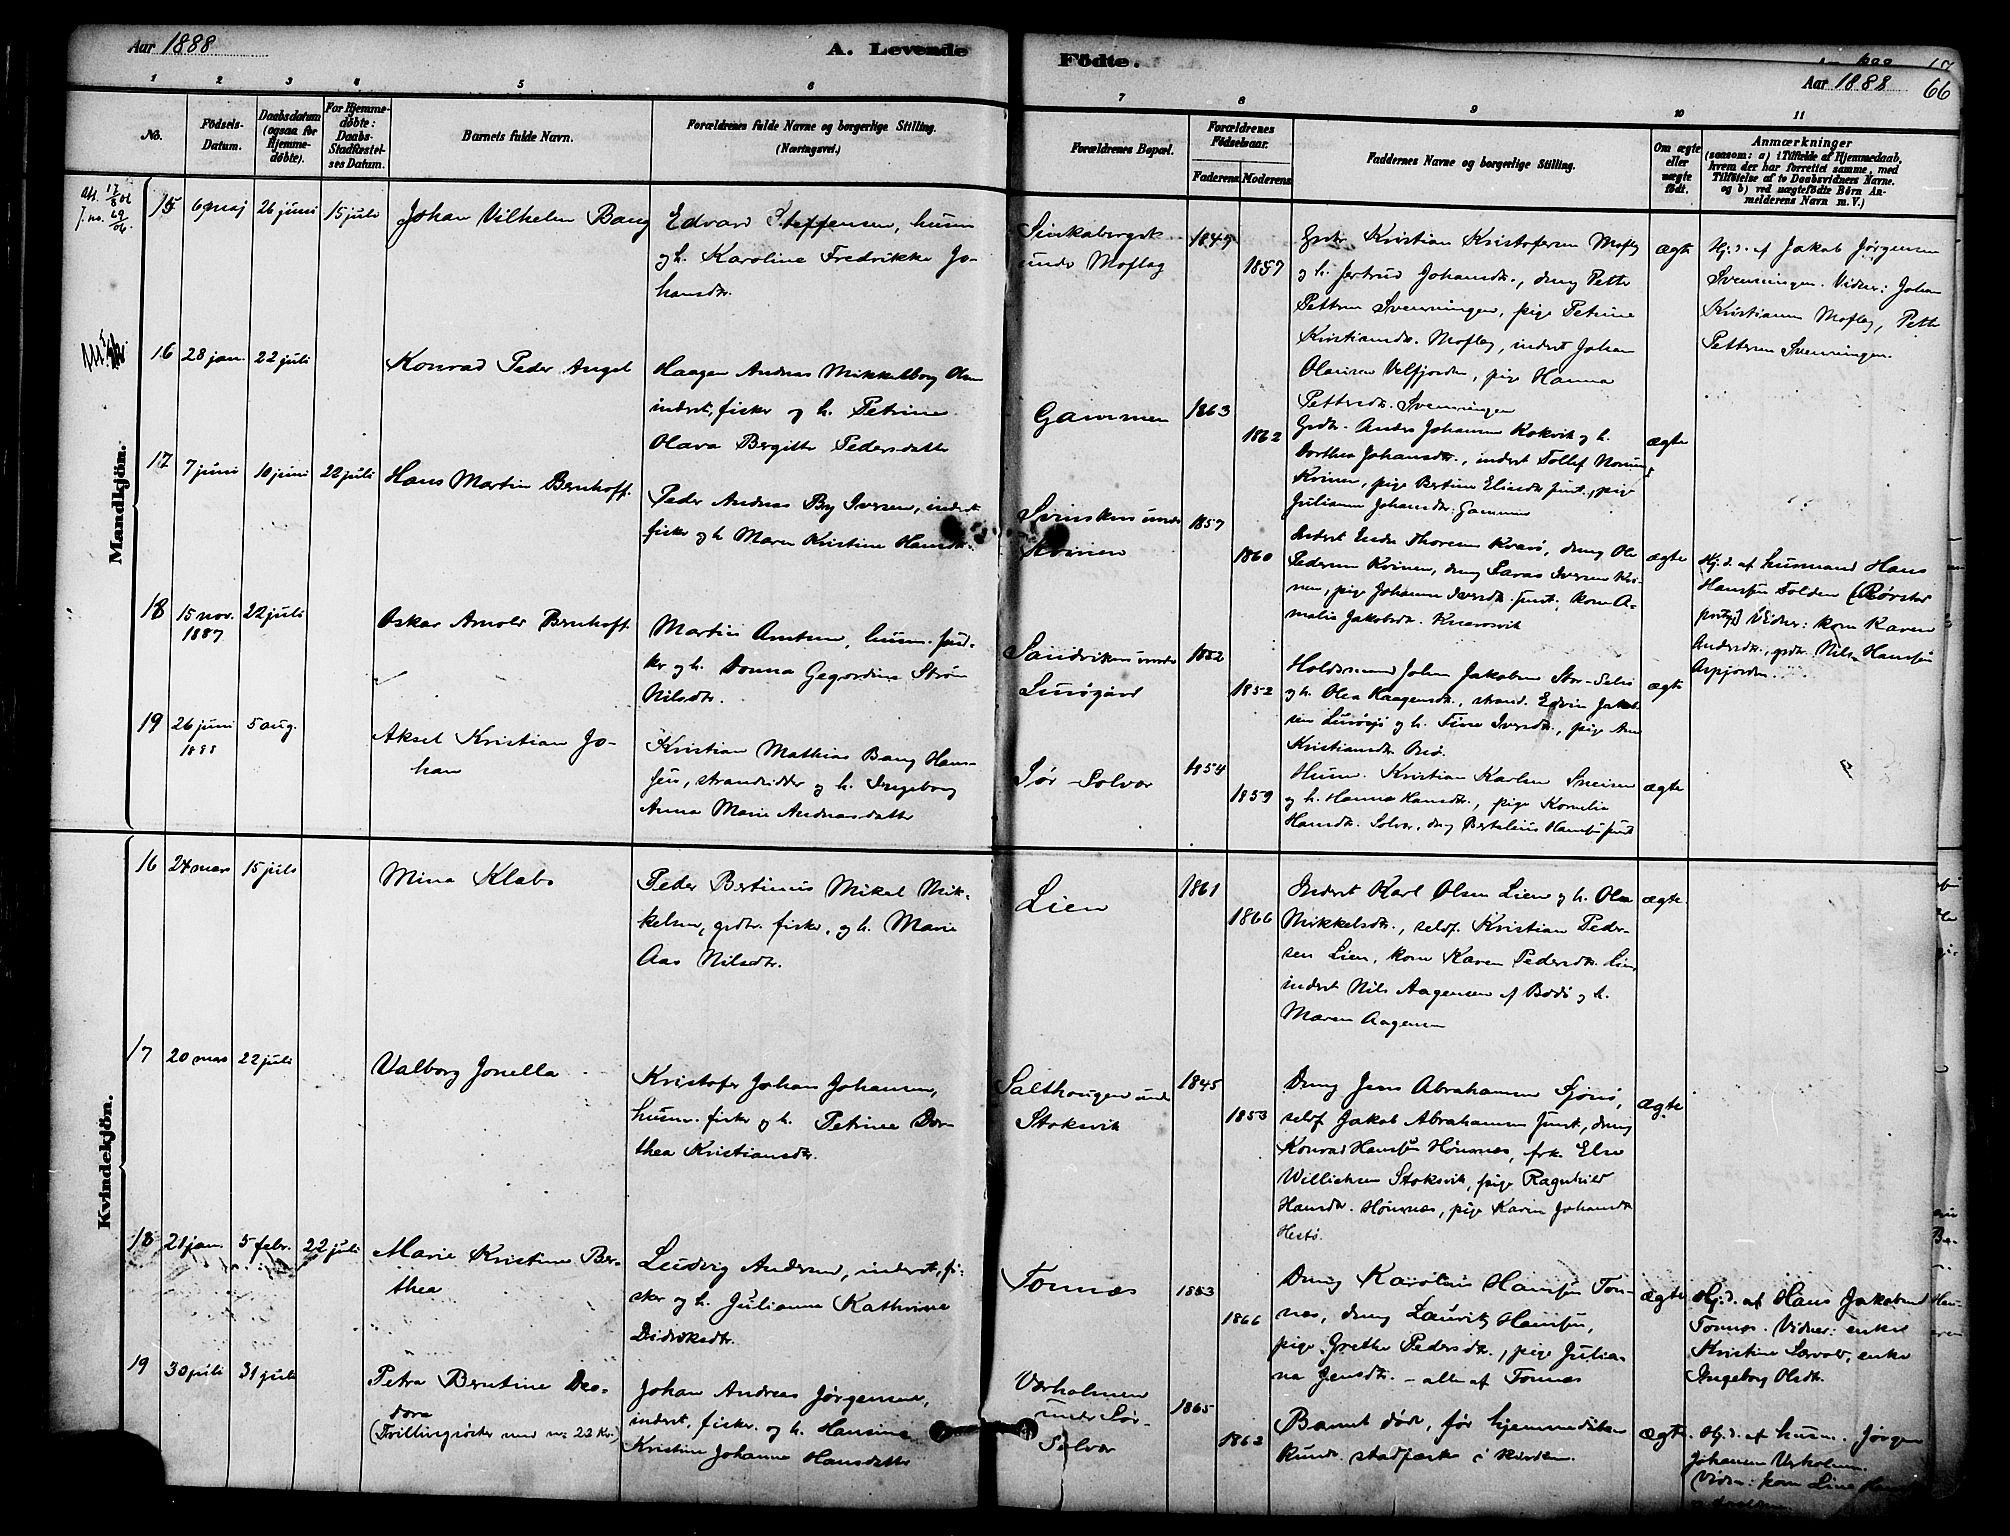 Aar 1888
A. Levende
Födte.
Aar 1888
66
1 2 3 4 5 6 7 8 9 10 11
No.
Födsels-Datum.
Daabsdatum (ogsaa for Hjemmedöbte).
For Hjemmedöbte: Daabs-Stadfæstelses Datum.
Barnets fulde Navn.
Forældrenes fulde Navne og borgerlige Stilling. (Næringsvei.)
Forældrenes Bopæl.
Forældrenes Födselsaar.
Faderens Moderens
Faddernes Navne og borgerlige Stilling.
Om ægte eller uægte födt.
Anmærkninger
(saasom: a) i Tilfælde af Hjemmedaab, hvem der har forrettet samme, med Tilföielse af to Daabsvidners Navne. og b) ved uægtefödte Börn Anmelderens Navn m. V.)
Mandkjön.
att. 17/8 06
J. no. 69/06.
15 6 maj 26 juni 15 juli Johan Vilhelm Bang
Edvard Steffensen, husm
og h. Karoline Fredrikke Jo-
hansdtr.
under Moflag
1857
Kristian Kristofersen Moflag
og h. Johansdtr., dreng Petter
Pettersen Svenningen, pige Petrine
Kristiansdtr. Moflag, inderst Johan
Velfjorden, pige Hanna
Pettersdtr. Svenningen
ægte
Hj.d. af Jakob Jørgensen
Svenningen. Vidner: Johan
Kristiansen Moflag, Petter
Pettersen Svenningen.
16 28 jan. 22 juli Konrad Peder Angel
Haagen Andreas Mikkelborg Olsen
inderst, fisker og h. Petrine
Olava Bergitte Pedersdatter
Gammen 1863
1862
Anders Johansen Kokvik og h.
Dorthea Johansdtr., inderst Tollef
Kvinen, pige Bertine
Juliane Johansdtr. Gammen
ægte
17 7 juni 10 juni 22 juli Hans Martin Bernhoff.
Peder Andreas By Iversen, inderst
fisker og h. Maren Kristine Hansdtr.
Kvinen
1857
1860
Inderst Thoresen Kvarø, dreng Ole
Pedersen Kvinen, dreng Iversen Kvi-
nen, pige Johanna Iversdtr. smst., kone A-
malie Jakobsdtr.
ægte
Hj.d. af husmand Hans
Hansen Folden
Vidner: kone Karen
Andersdtr., grdbr. Nils Hansen
18 15 nov. 1887 22 juli Oskar Arnold Bernhoff.
Martin Antsen, husm. fis-
ker og h. Donna Gegordine Strøm
Nilsdtr.
Sandviken under
1852
1852
Holdsmand Johan Jakobsen
og h. Olea Haagensdtr., strands. Edvin
og h. Fine Iversdtr., pige
Kristiansdtr.
ægte
19 26 juni 1888 5 aug. Aksel Kristian Jo-
han
Kristian Mathias Bang Han-
sen, strandsidder og h. Ingeborg
Anna Marie Andreasdatter
Sør-Solvær 1854
1859
Husm. Kristian Karlsen
og h. Hanna Hansdtr., pige Kornelia
Hansdtr. Solvær, dreng Bertelius Hansen smst
ægte
Kvindekjön.
16 24 mars 15 juli Mina Klabo
Peder Bertinus Mikal Mik-
kelsen, grdbr. fisker, og h. Marie
Aas Nilsdtr.
Lien 1861
1866
Inderst Karl Olsen Lien og h. Olea
Mikkelsdtr., selvf. Kristian Peder-
sen Lien, kone Karen Pedersdtr. Lien
inderst Nils Aagensen af Bodø og h.
Maren Aagensen
ægte
17 20 mars 22 juli Valborg Jonella
Kristofer Johan Johansen,
husm. fisker og h. Petrine Dor-
thea Kristiansdtr.
Salthougen under
Stoksvik
1845
1853
Dreng Jens Abrahamsen Sjonø,
selvf Jakob Abrahamsen smst., dreng
Konrad Hansen Hønsnes, frk. Else
Willichsen Stoksvik, pige Ragnhild
Hansdtr. Hønsnes, pige Karen Johansdtr
Hestø.
ægte
18 21 jan. 5 febr. 22 juli Marie Kristine Ber-
thea
Ludvig Andersen, inderst, fi-
sker og h. Julianna Kathrine
Didriksdtr.
Tonnæs 1853
1866
Dreng Karolius Hansen Ton-
næs, dreng Lauritz Hansen,
pige Grethe Pedersdtr., pige Julia-
na Jensdtr. - alle af Tonnæs
ægte
Hj.d. af Hans Jakobsen
Tonnæs. Vidner: enke
Kristine enke
Ingeborg Olsdtr.
19 30 juli 31 juli Petra Berntine Deo-
dora
(Tvillingsøster med no 22 Kv.)
Johan Andreas Jørgensen,
inderst, fisker. og h. Hansine
Kristine Johanne Hansdatter
Værholmen
under Sør-
Solvær
1865
1863
Barnet døde, før hjemmedåben
kunde stadfæstes i kirken.
ægte
Hj.d. af husm. Jørgen
Johansen Værholmen.
Vidner: kone Line